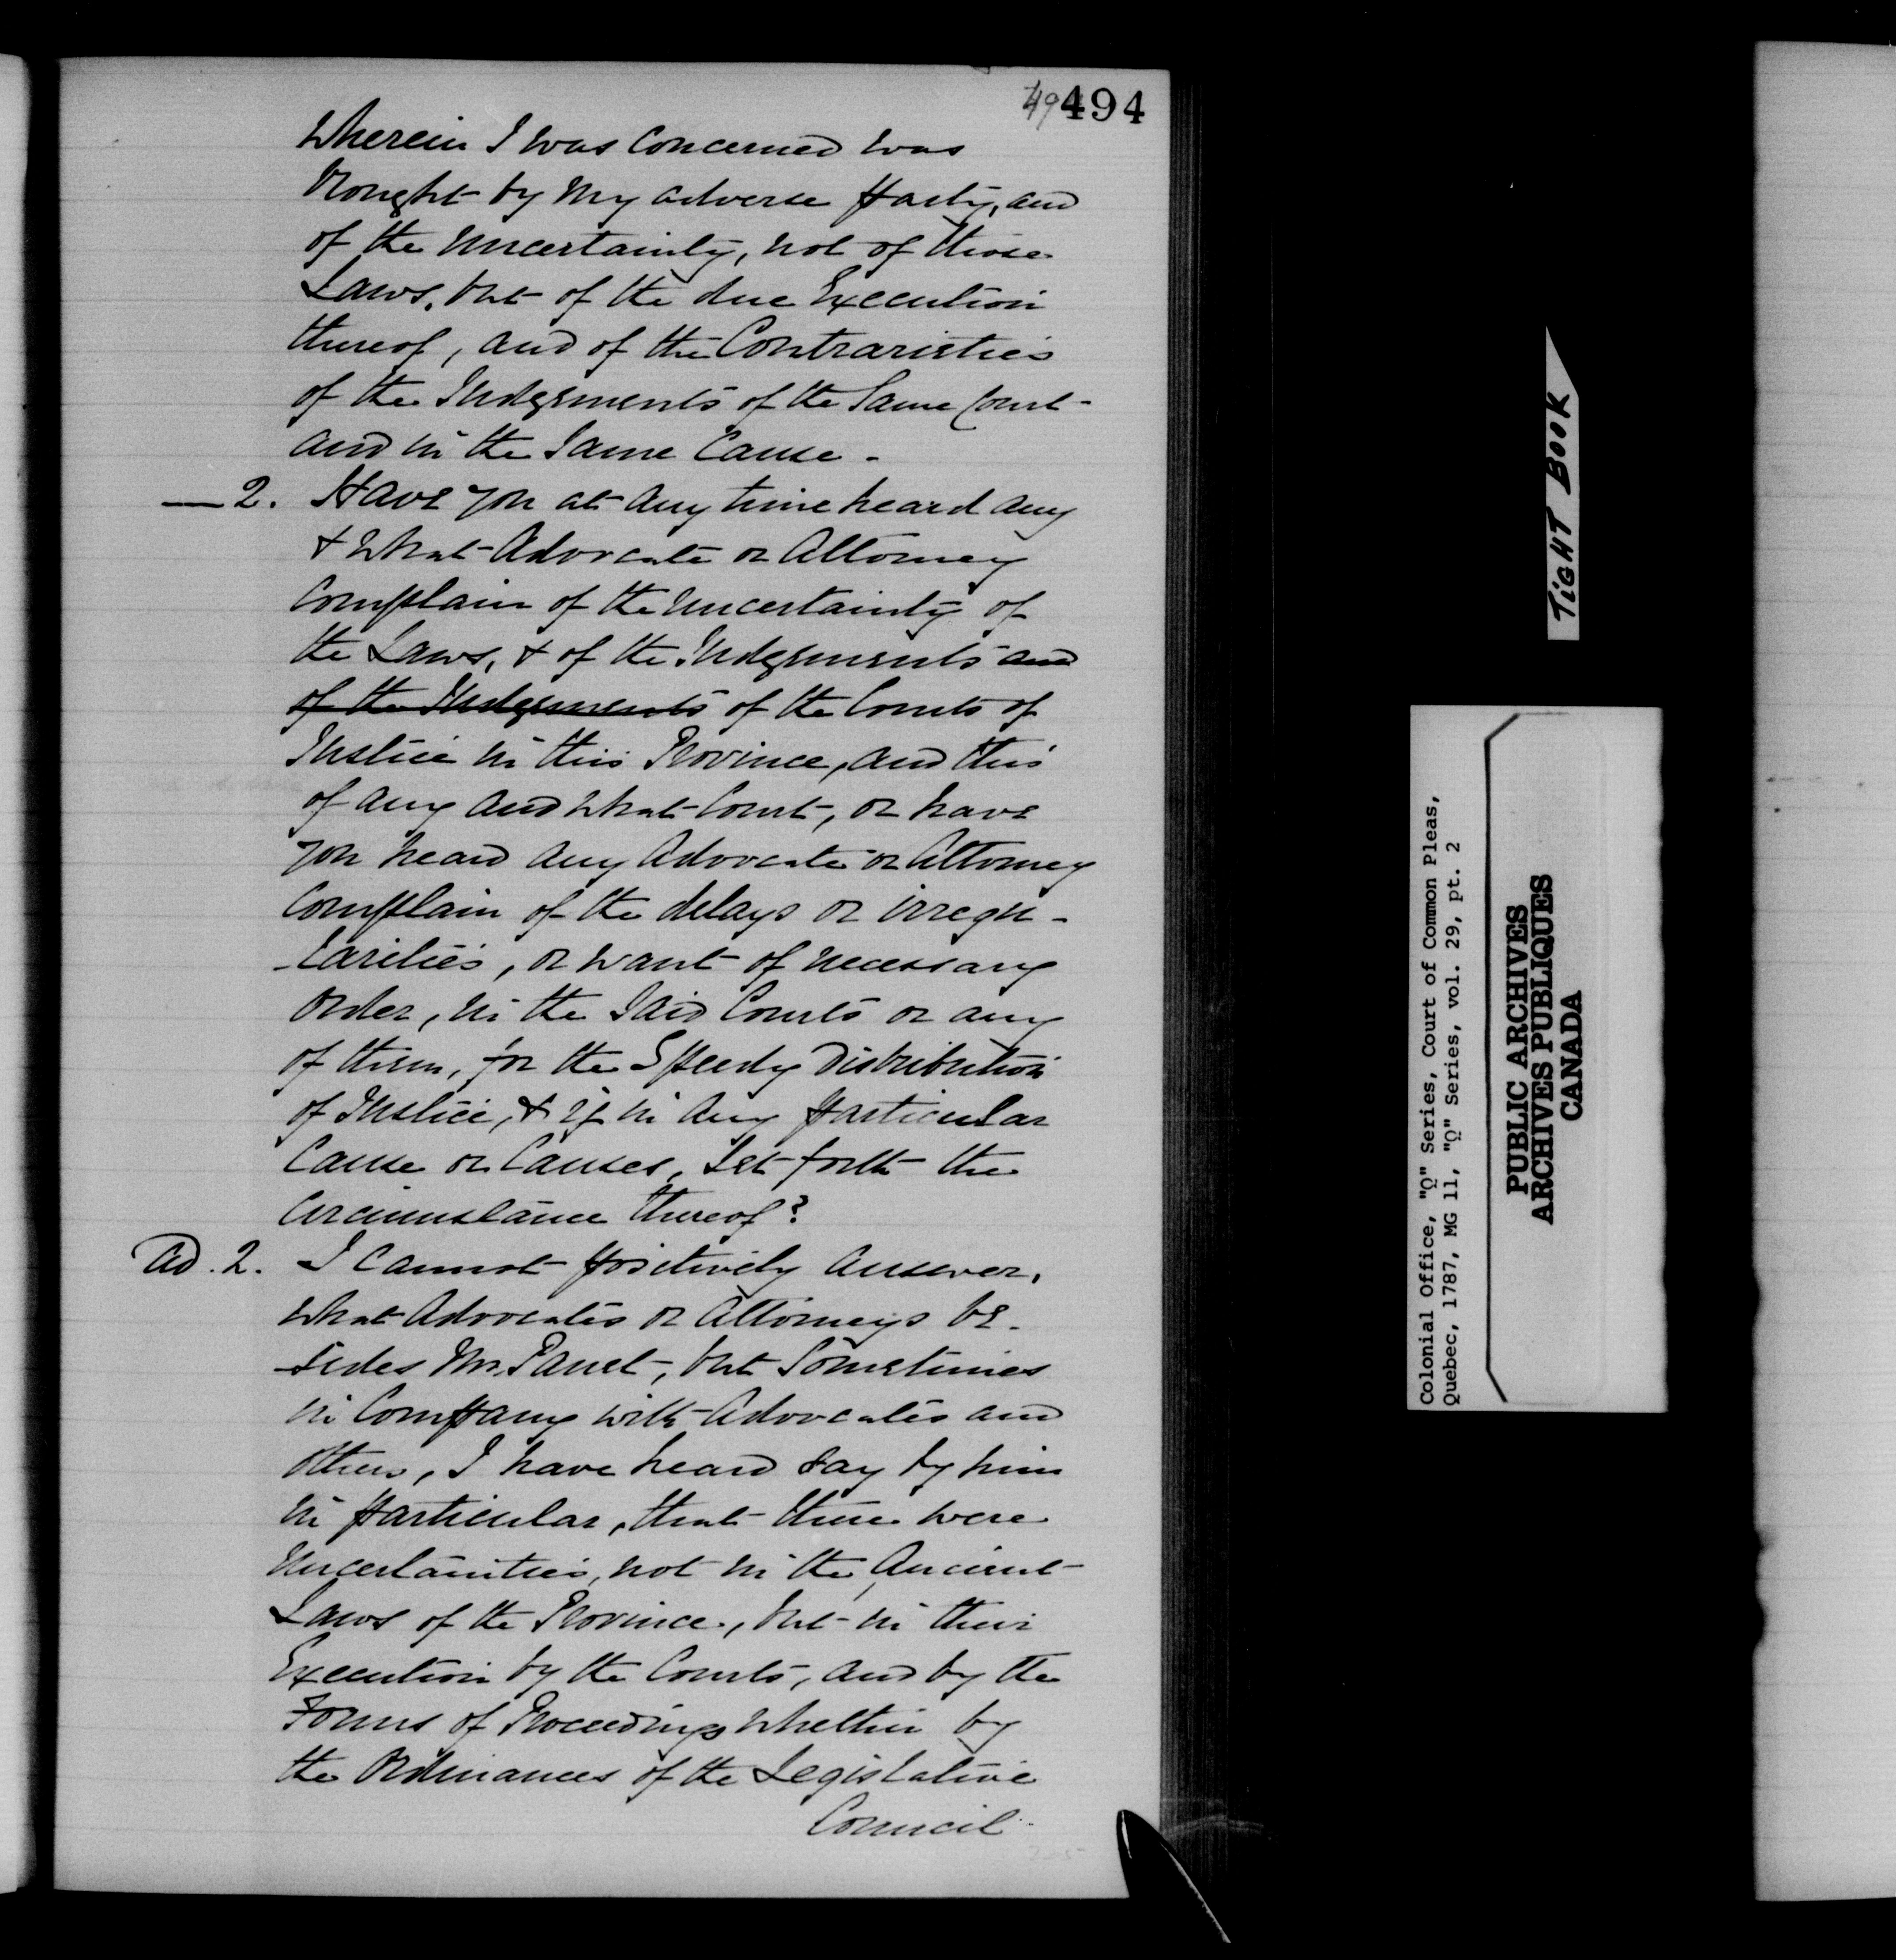 494
Wherein I was Concerned was
brought by my adverse Party, and
of the uncertainty, not of those
Laws, but of the due Execution
thereof, and of the Contrarieties
of the Judgements of the Same Court
and in the Same Cause.
— 2. Have you at any time heard any
& what Advocate or Attorney
Complain of the uncertainty of
the Laws, & of the Judgements and
of the Judgements of the Courts of
Justice in this Province, and this
of any and what Court, or have
you heard any Advocate or Attorney
Complain of the delays or irregu-
-larities, or want of necessary
Order, in the Said Courts or any
of them, for the Speedy Distribution
of Justice, & if in any particular
Cause or Causes, Set forth the
Circumstance thereof?
Ad. 2. I Cannot positively answer,
what Advocates or Attorneys be-
-sides Mr. Panet, but Sometimes
in Company with Advocates and
others, I have heard Say by him
in particular, that there were
Uncertainties, not in the Ancient
Laws of the Province, but in their
Execution by the Courts, and by the
Forms of Proceedings whether by
the Ordinances of the Legislative
Council
TIGHT BOOK
Colonial Office, "Q" Series, Court of Common Pleas,
Quebec, 1787, MG 11, "Q" Series, vol. 29, pt. 2
PUBLIC ARCHIVES
ARCHIVES PUBLIQUES
CANADA